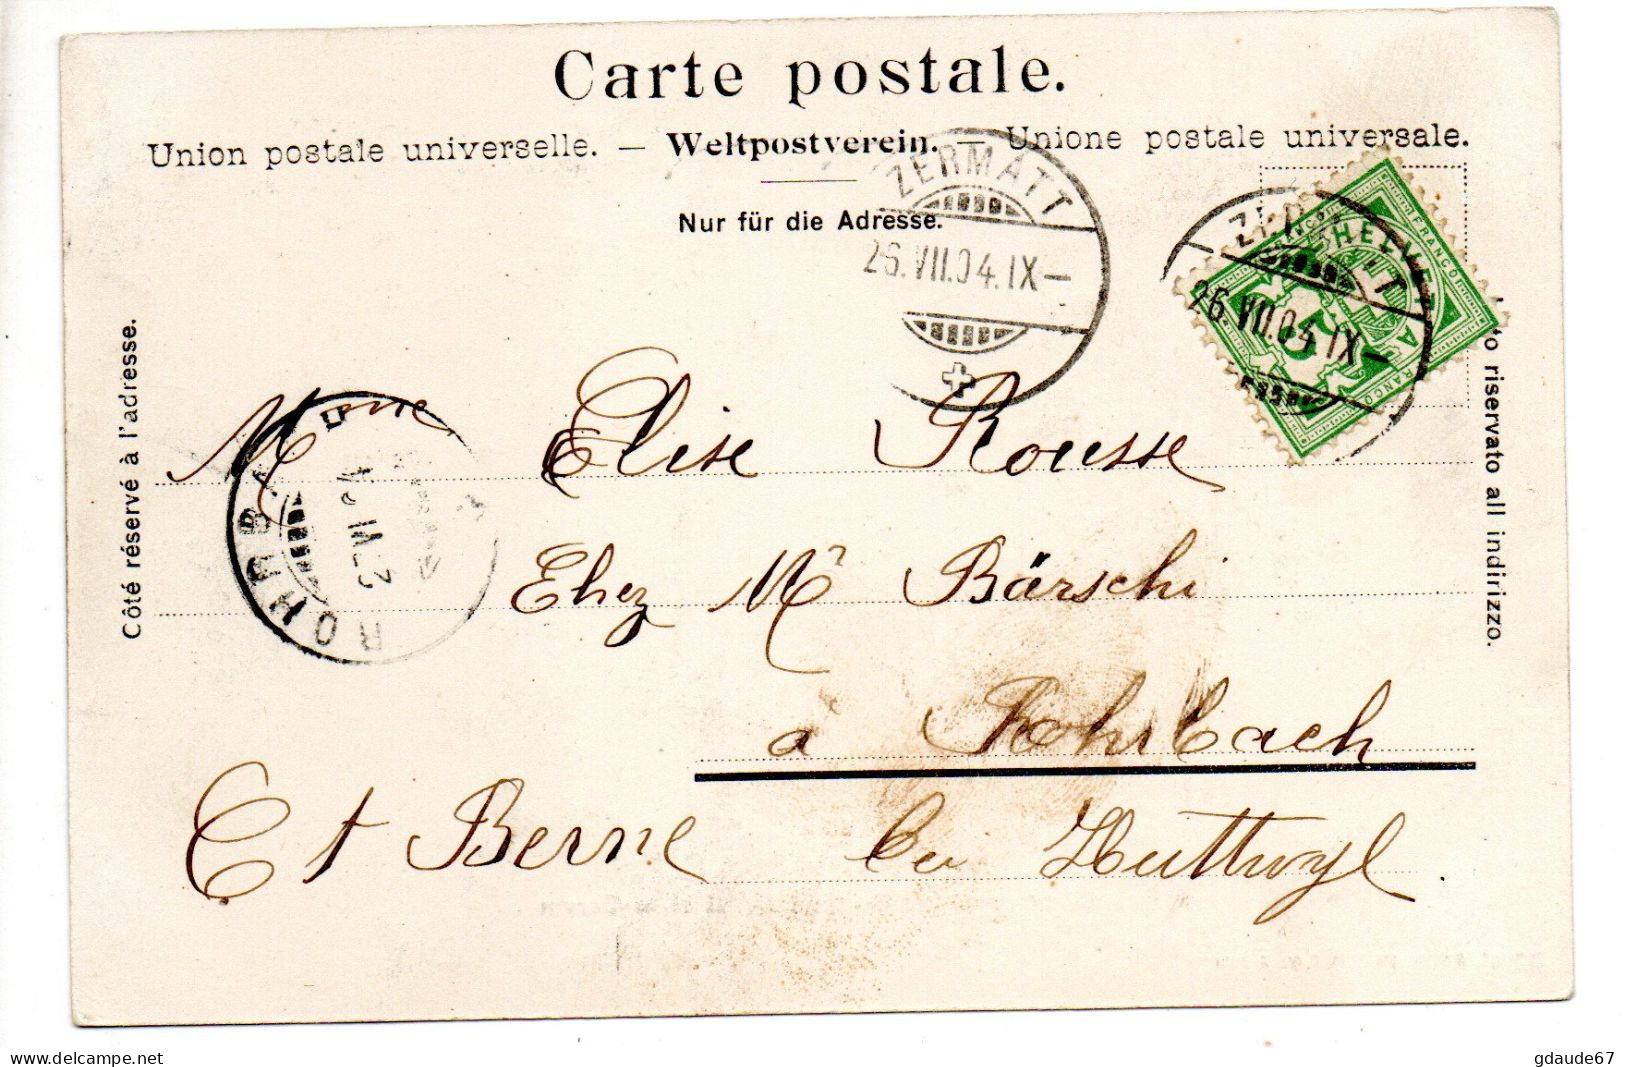 Carte postale.
Union postale universelle. — Weltpostverein. — Unione postale universale.
Nur für die Adresse.
ZERMATT
26.VII.04.IX—
26.VII.04.IX—
HELVETIA
FRANCO
5
Côté réservé à l'adresse.
riservato all indirizzo.
ROHRBA
Mme Elise Rousse
Chez Mr Bärschi
à Rohrbach
Ct Berne bei Huttwyl.
www.delcampe.net
gdaude67